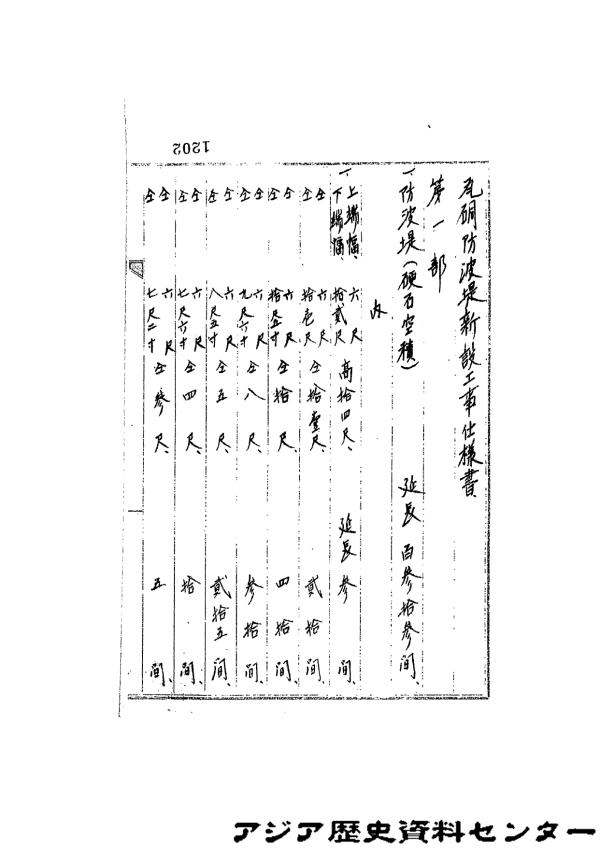 瓦硐防波堤新設工事仕様書
第一部
一、防波堤(硬石空積) 延長 百参拾参間、
内
一、上端幅、六尺 下端幅、拾貳尺 高拾四尺、 延長 参間、
仝 六尺 仝 拾壱尺 仝拾壹尺、 貳拾間、
仝 六尺 仝 拾尺五寸 仝拾尺、 四拾間、
仝 六尺 仝 九尺六寸 仝八尺、 参拾間、
仝 六尺 仝 八尺五寸 仝五尺、 貳拾五間、
仝 六尺 仝 七尺六寸 仝四尺、 拾間、
仝 六尺 仝 七尺二寸 仝参尺、 五間、
1202
アジア歴史資料センター